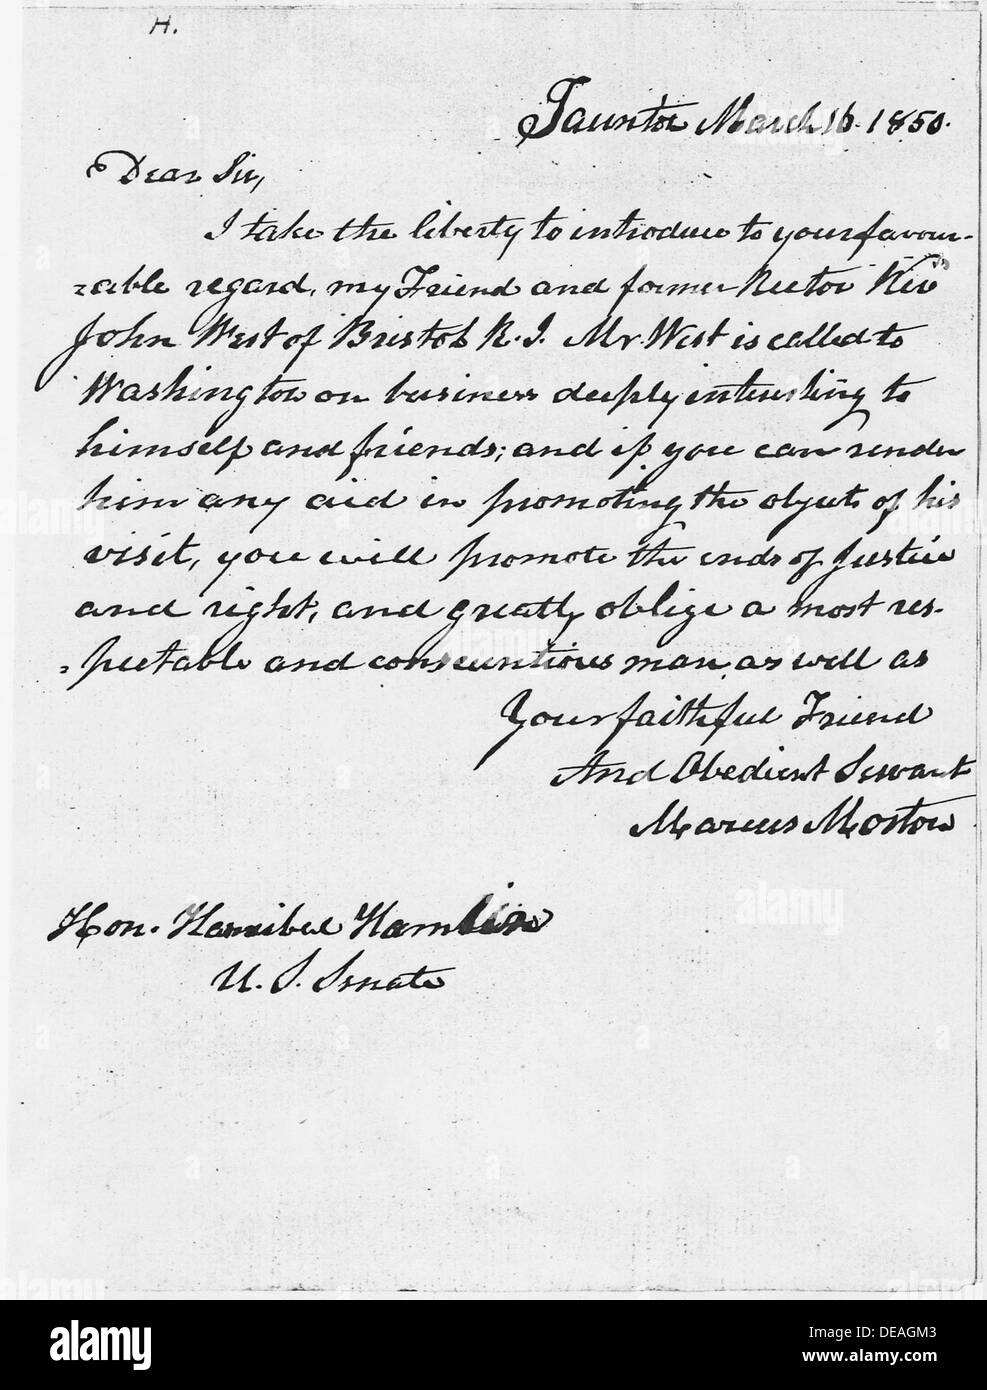 H.
Taunton March 16. 1850.
Dear Sir,
I take the liberty to introduce to your favour-
-able regard, my Friend and former Rector Rev
John West of Bristol R. I. Mr. West is called to
Washington on business deeply interesting to
himself and friends; and if you can render
him any aid in promoting the objects of his
visit, you will promote the ends of Justice
and right, and greatly oblige a most res-
-pectable and conscientious man, as well as
Your faithful Friend
And Obedient Servant
Marcus Morton
Hon. Hannibal Hamlin
U. S. Senate
alamy
Image ID: DEAGM3
www.alamy.com